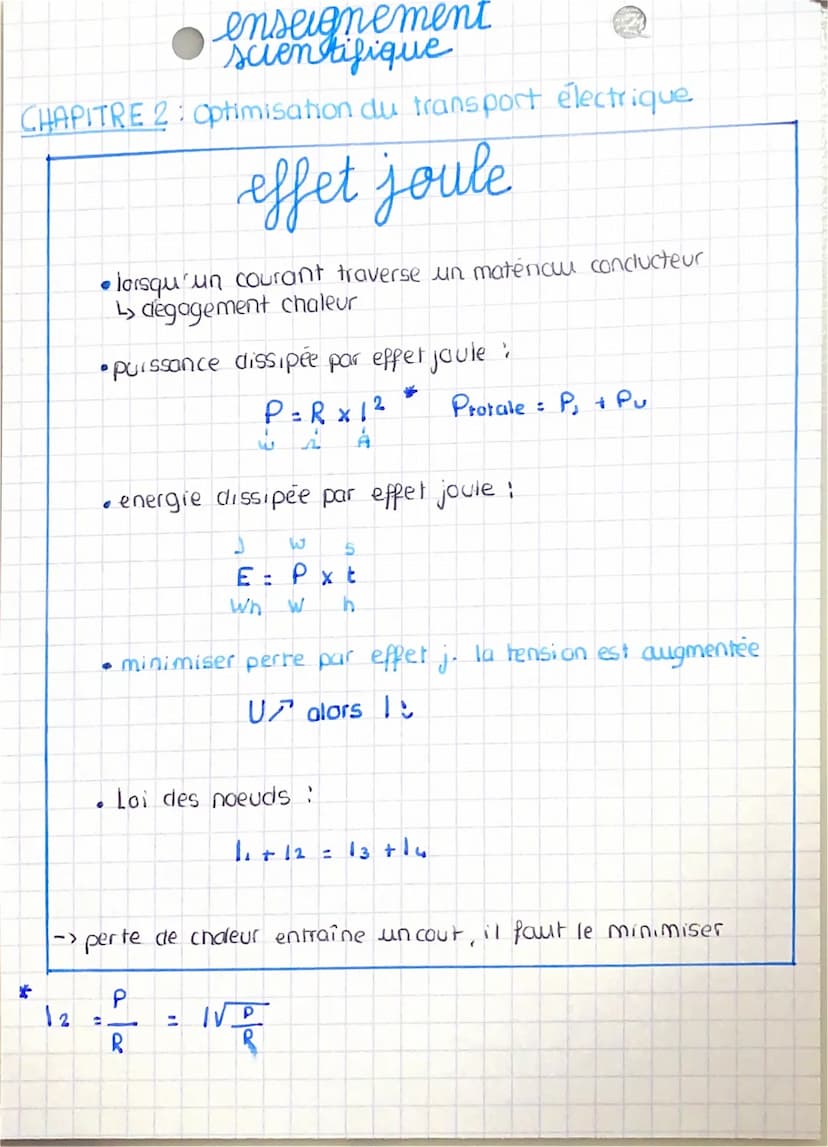 enseignement
scientifique
CHAPITRE 2 : Optimisation du transport électrique
effet joule
• lorsqu'un courant traverse un matériau conducteur
↳ dégagement chaleur
• puissance dissipée par effet joule :
P = R x I² * Ptotale = PJ + PU
W Ω A
• energie dissipée par effet joule :
J W s
E = P x t
Wh W h
• minimiser perte par effet j. la tension est augmentée
U↗ alors I↘
• Loi des noeuds :
I1 + I2 = I3 + I4
-> perte de chaleur entraîne un cout, il faut le minimiser
* I2 = P/R = I√P/R